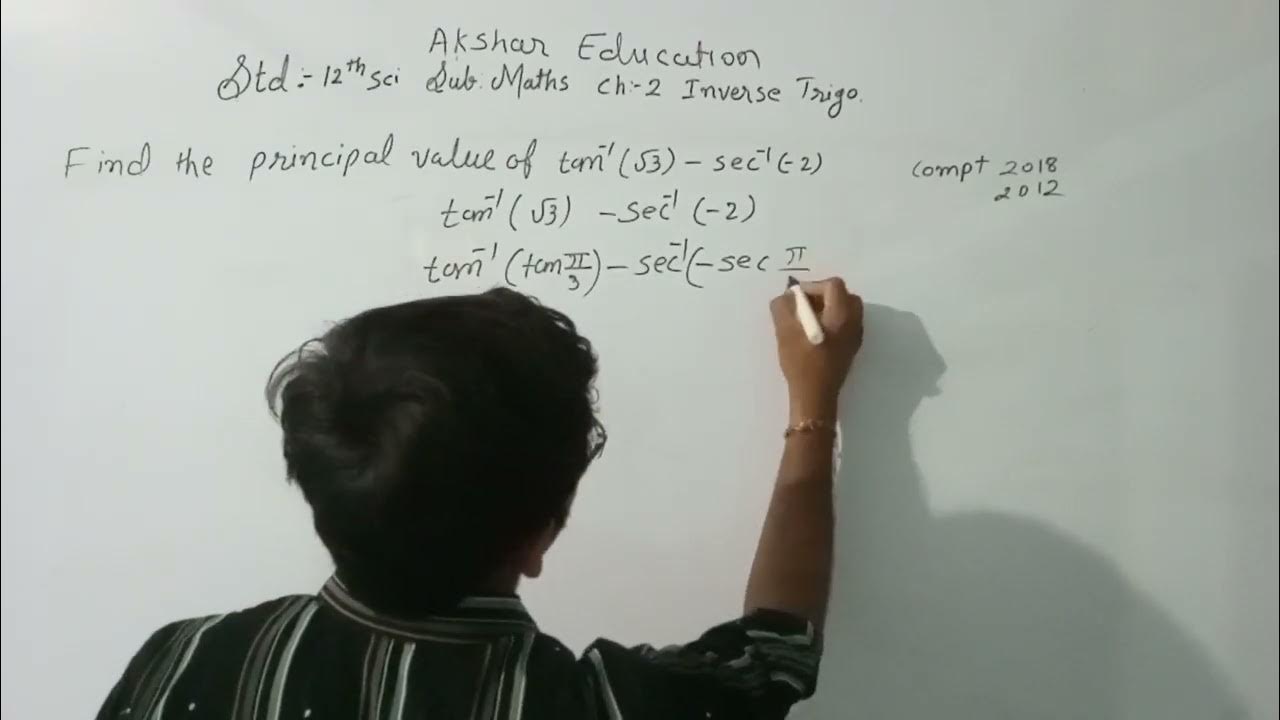 Akshar Education
Std:- 12th sci Sub: Maths ch:-2 Inverse Trigo.
Find the principal value of tan⁻¹(√3) - sec⁻¹(-2) compt 2018
2012
tan⁻¹(√3) - sec⁻¹(-2)
tan⁻¹(tan π/3) - sec⁻¹(-sec π